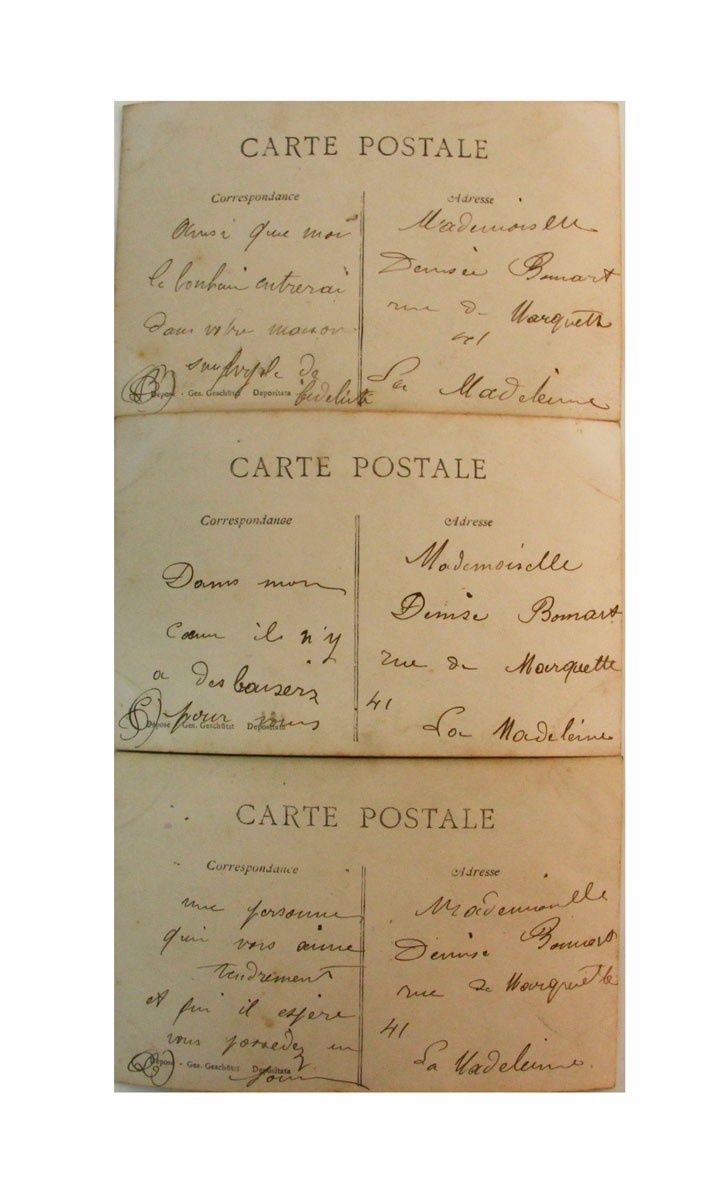 CARTE POSTALE
Correspondance
Ainsi que moi
le bonheur entrerai
dans votre maison
de
fidelité
Déposé - Ges. Geschützt Depositata
Adresse
Mademoiselle
Denise Bomart
rue de Marquette
41
La Madeleine
CARTE POSTALE
Correspondance
Dans mon
Cœur il n'y
a des baisers
pour vous
Déposé - Ges. Geschützt Depositata
Adresse
Mademoiselle
Denise Bomart
rue de Marquette
41
La Madeleine
CARTE POSTALE
Correspondance
une personne
qui vous aime
tendrement
et qui il espère
vous possedez un
jour
Déposé - Ges. Geschützt Depositata
Adresse
Mademoiselle
Denise Bomart
rue de Marquette
41
La Madeleine